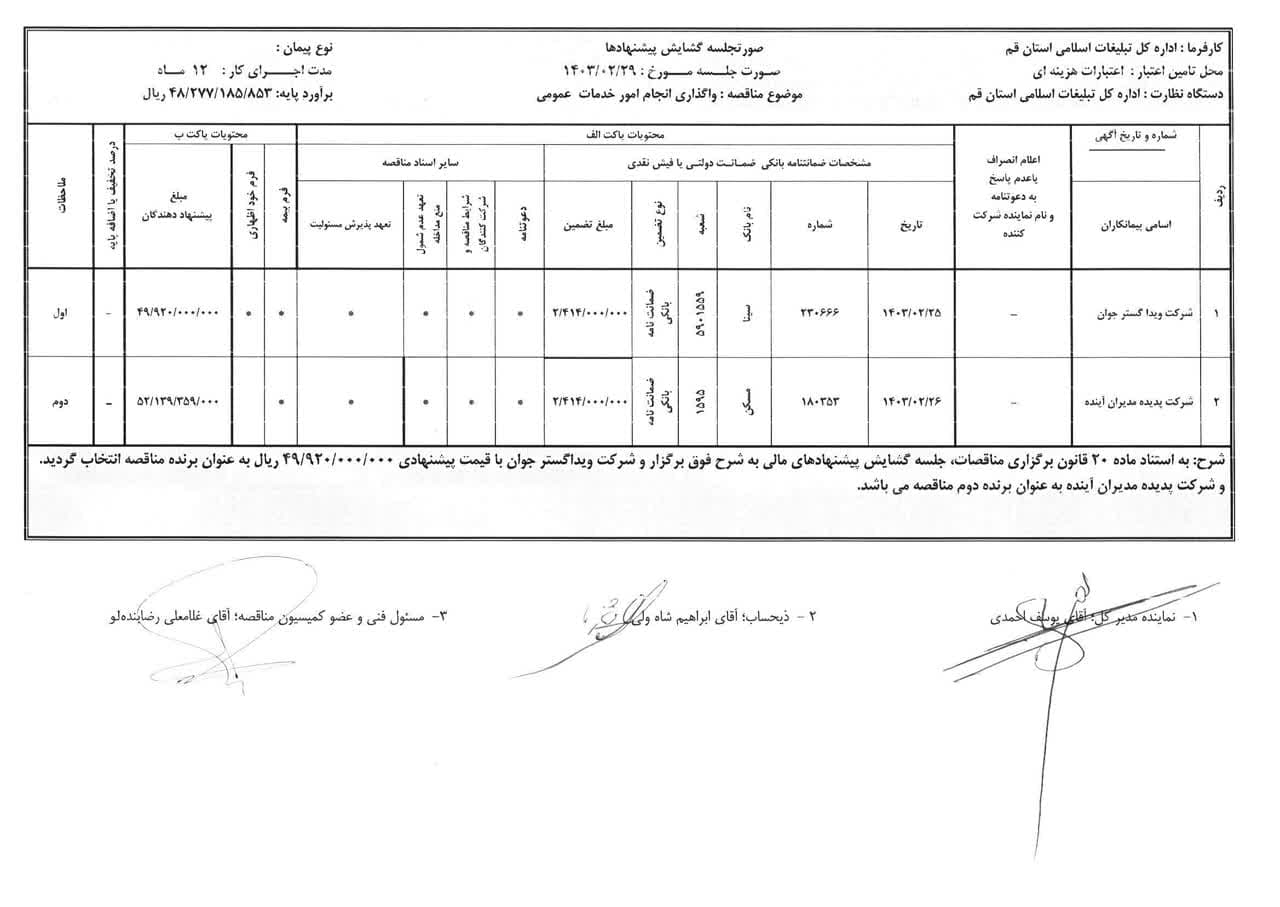 کارفرما : اداره کل تبلیغات اسلامی استان قم
محل تامین اعتبار : اعتبارات هزینه ای
دستگاه نظارت : اداره کل تبلیغات اسلامی استان قم
صورتجلسه گشایش پیشنهادها
صورت جلسه مورخ : ۱۴۰۳/۰۲/۲۹
موضوع مناقصه : واگذاری انجام امور خدمات عمومی
نوع پیمان :
مدت اجرای کار : ۱۲ ماه
برآورد پایه: ۴۸/۲۷۷/۱۸۵/۸۵۳ ریال
ردیف
شماره و تاریخ آگهی
اسامی پیمانکاران
اعلام انصراف
یاعدم پاسخ
به دعوتنامه
و نام نماینده شرکت
کننده
محتویات پاکت الف
مشخصات ضمانتنامه بانکی ضمانت دولتی یا فیش نقدی
تاریخ
شماره
نام بانک
شعبه
نوع تضمین
مبلغ تضمین
سایر اسناد مناقصه
دعوتنامه
شرایط مناقصه و
شرکت کنندگان
تعهد عدم شمول
منع مداخله
تعهد پذیرش مسئولیت
محتویات پاکت ب
فرم بیمه
فرم خود اظهاری
مبلغ
پیشنهاد دهندگان
درصد تخفیف یا اضافه پایه
ملاحظات
۱ شرکت ویدا گستر جوان – ۱۴۰۳/۰۲/۲۵ ۲۳۰۶۶۶ سینا ۵۹۰۱۵۵۹ ضمانت نامه بانکی ۲/۴۱۴/۰۰۰/۰۰۰ * * * * * * ۴۹/۹۲۰/۰۰۰/۰۰۰ – اول
۲ شرکت پدیده مدیران آینده – ۱۴۰۳/۰۲/۲۶ ۱۸۰۳۵۳ مسکن ۱۵۹۵ ضمانت نامه بانکی ۲/۴۱۴/۰۰۰/۰۰۰ * * * * * ۵۲/۱۳۹/۳۵۹/۰۰۰ – دوم
شرح: به استناد ماده ۲۰ قانون برگزاری مناقصات، جلسه گشایش پیشنهادهای مالی به شرح فوق برگزار و شرکت ویداگستر جوان با قیمت پیشنهادی ۴۹/۹۲۰/۰۰۰/۰۰۰ ریال به عنوان برنده مناقصه انتخاب گردید.
و شرکت پدیده مدیران آینده به عنوان برنده دوم مناقصه می باشد.
۱- نماینده مدیر کل؛ آقای یوسف احمدی
۲- ذیحساب؛ آقای ابراهیم شاه ولی
۳- مسئول فنی و عضو کمیسیون مناقصه؛ آقای غلامعلی رضابنده‌لو